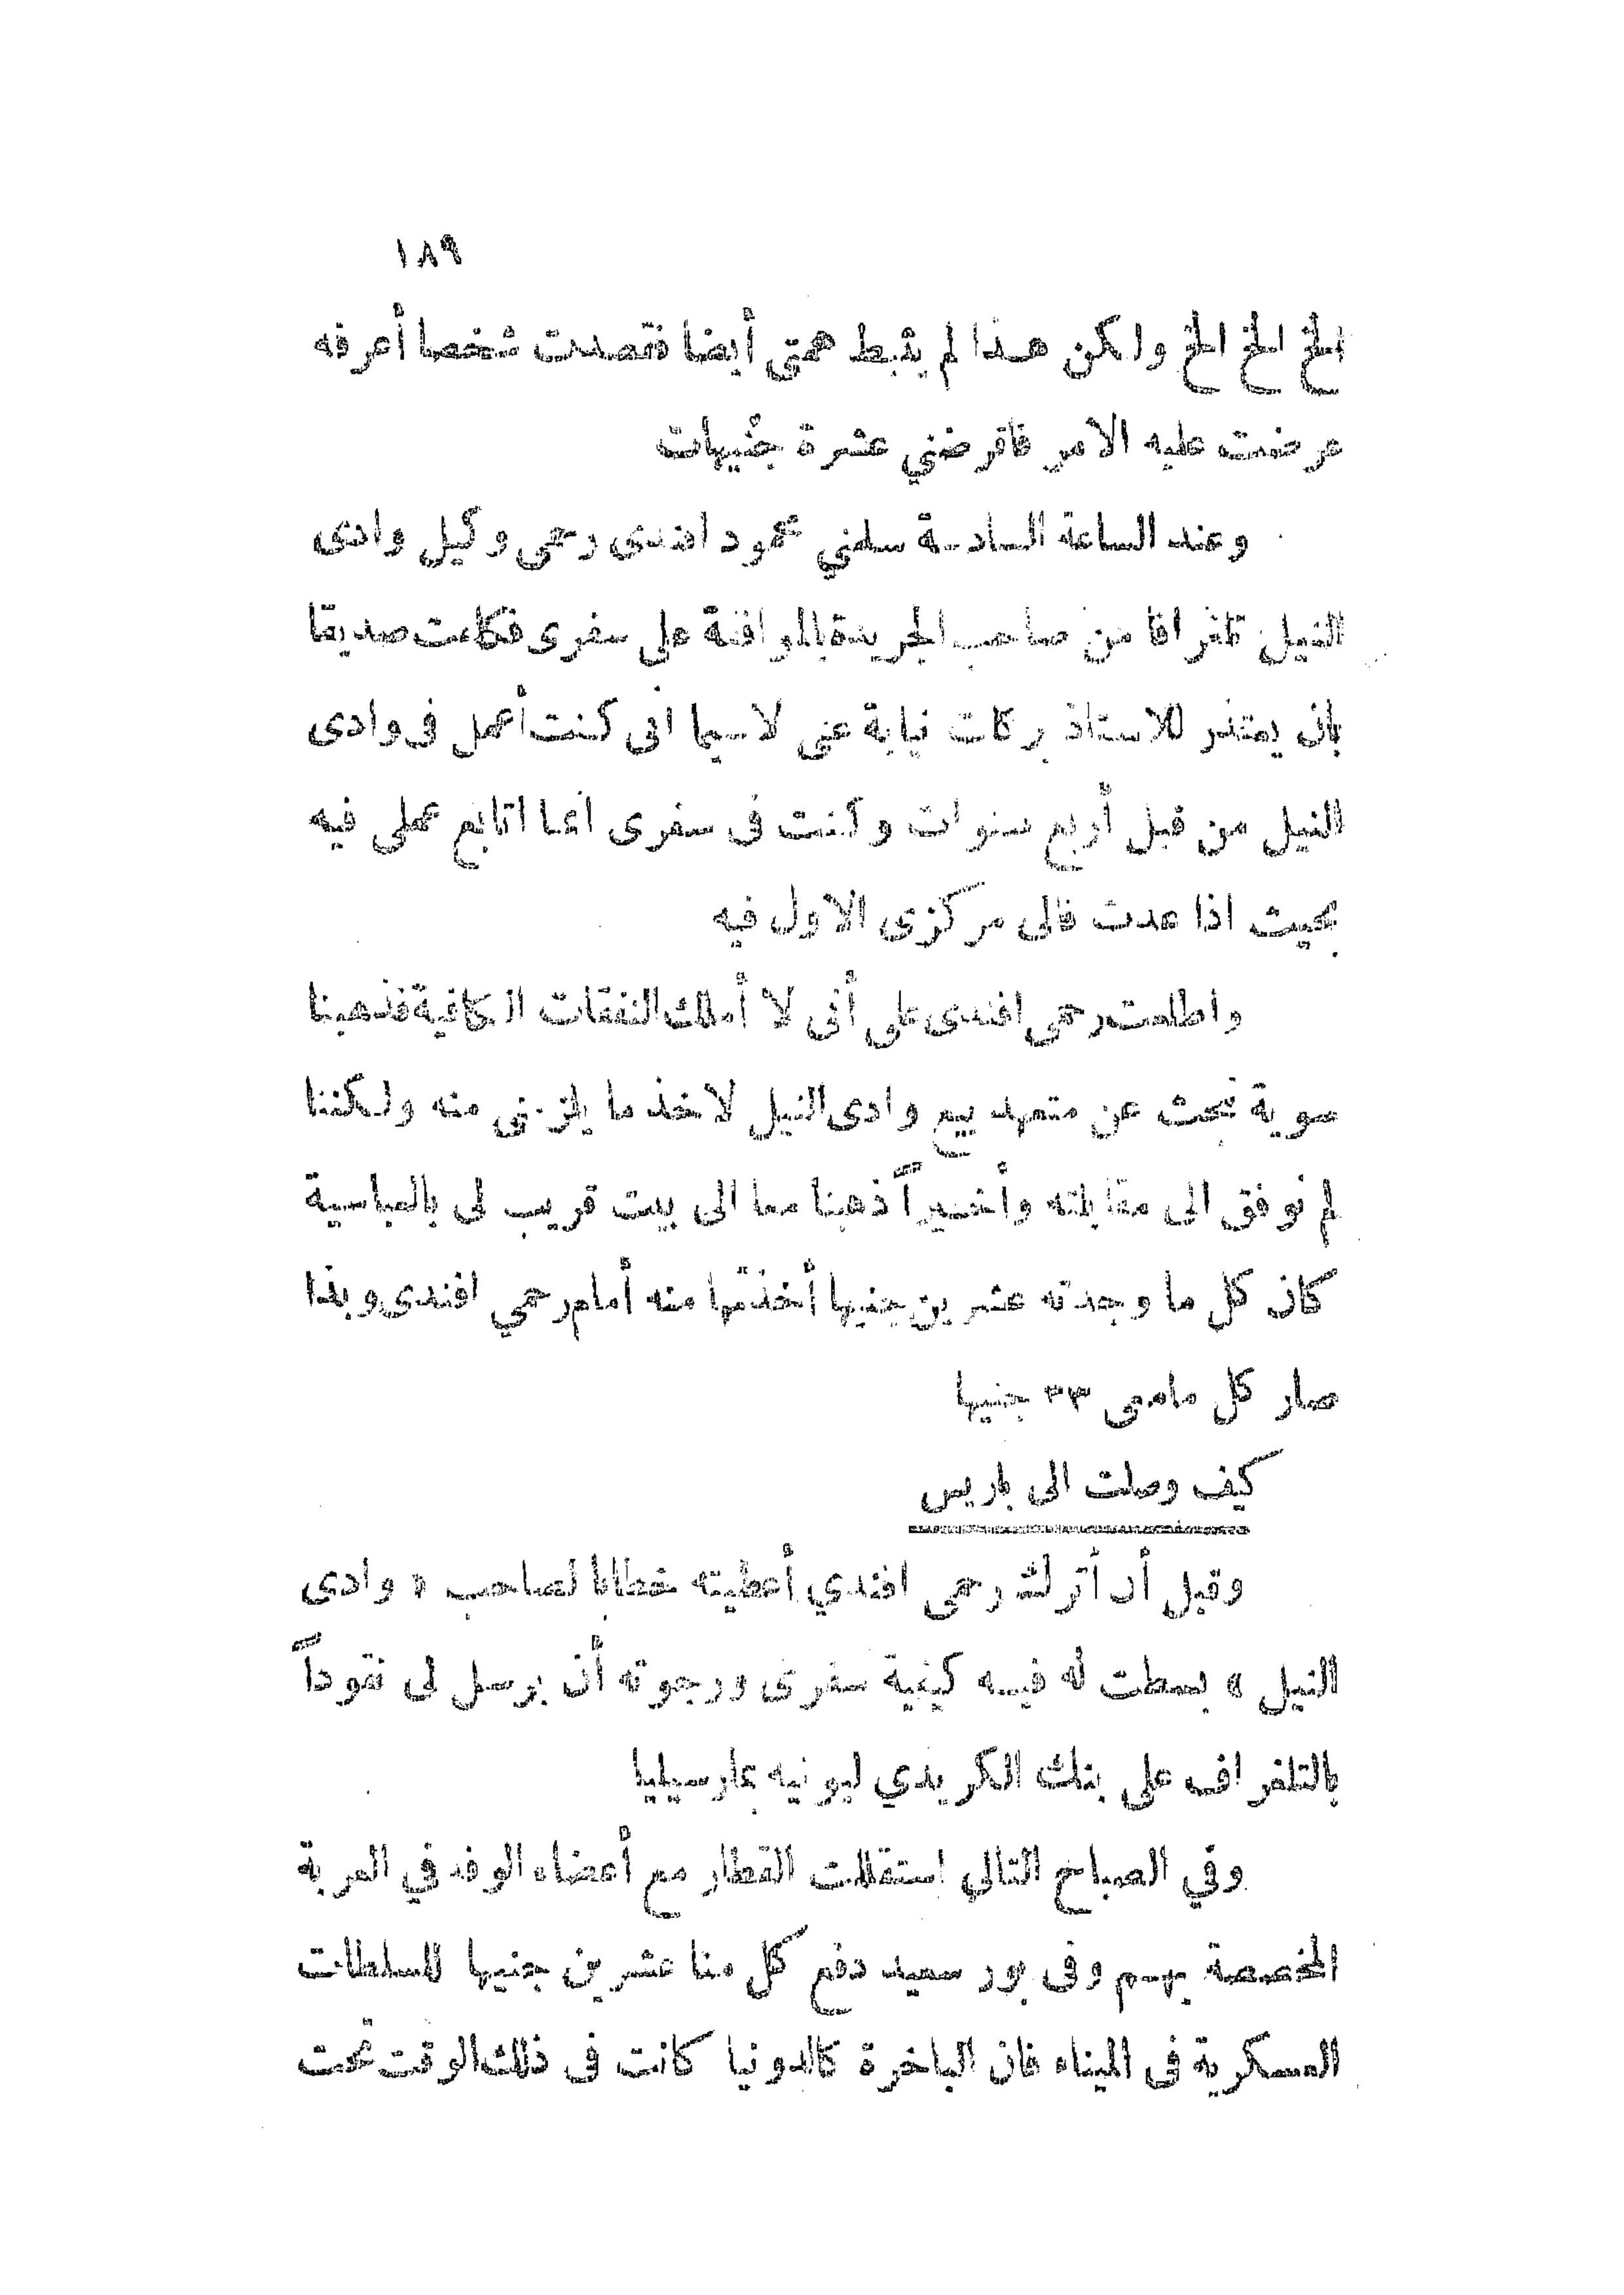 ١٨٩
الخ الخ الخ ولكن هذا لم يثبط همتى أيضا فقصدت شخصا أعرفه
عرضت عليه الامر فاقرضني عشرة جنيهات
وعند الساعة السادسة سلمني محمود افندى رحمى وكيل وادى
النيل تلغرافا من صاحب الجريدة بالموافقة على سفرى فكلفت صديقا
بان يعتذر للاستاذ بركات نيابة عنى لاسيما انى كنت أعمل فى وادى
النيل من قبل أربع سنوات وكنت فى سفرى انما اتابع عملى فيه
بحيث اذا عدت فالى مركزى الاول فيه
واطلعت رحمى افندى على أنى لا أملك النفقات الكافية فذهبنا
سوية نبحث عن متعهد بيع وادى النيل لاخذ ما يلزمنى منه ولكننا
لم نوفق الى مقابلته وأخيراً ذهبنا معا الى بيت قريب لى بالعباسية
كان كل ما وجدته عشرين جنيها أخذتها منه أمام رحمي افندى وبذا
صار كل مامعى ٣٣ جنيها
كيف وصلت الى باريس
وقبل أن أترك رحمى افندي أعطيته خطابا لصاحب « وادى
النيل » بسطت له فيه كيفية سفرى ورجوته أن يرسل لى نقوداً
بالتلغراف على بنك الكريدي ليونيه بمارسيليا
وفي الصباح التالي استقللت القطار مع أعضاء الوفد في العربة
المخصصة بهم وفى بور سعيد دفع كل منا عشرين جنيها للسلطات
العسكرية فى الميناء فان الباخرة كالدونيا كانت فى ذلك الوقت تحت